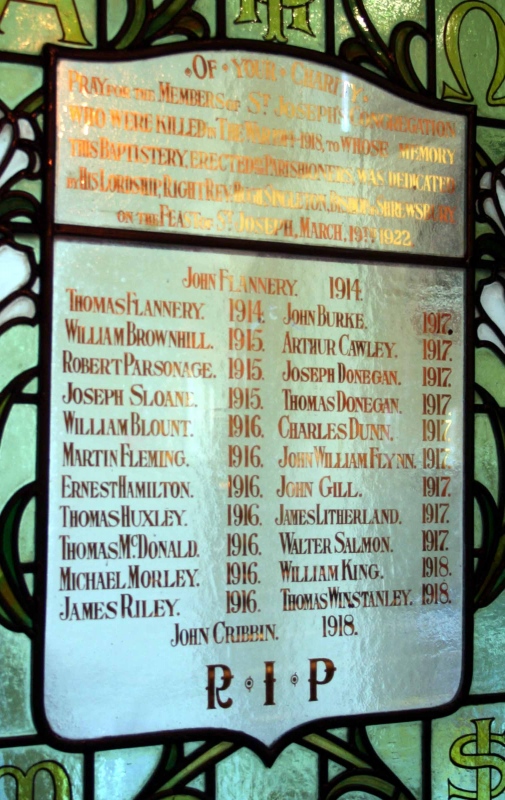 OF · YOUR · CHARITY.
PRAY FOR THE MEMBERS OF ST JOSEPH'S CONGREGATION
WHO WERE KILLED IN THE WAR 1914-1918, TO WHOSE MEMORY
THIS BAPTISTERY, ERECTED BY PARISHIONERS, WAS DEDICATED
BY HIS LORDSHIP, RIGHT REV. HUGH SINGLETON, BISHOP OF SHREWSBURY
ON THE FEAST OF ST JOSEPH, MARCH, 19TH 1922.
JOHN FLANNERY. 1914.
THOMAS FLANNERY. 1914. JOHN BURKE. 1917.
WILLIAM BROWNHILL. 1915. ARTHUR CAWLEY. 1917.
ROBERT PARSONAGE. 1915. JOSEPH DONEGAN. 1917.
JOSEPH SLOANE. 1915. THOMAS DONEGAN. 1917
WILLIAM BLOUNT. 1916. CHARLES DUNN. 1917
MARTIN FLEMING. 1916. JOHN WILLIAM FLYNN. 1917.
ERNEST HAMILTON. 1916. JOHN GILL. 1917.
THOMAS HUXLEY. 1916. JAMES LITHERLAND. 1917.
THOMAS MCDONALD. 1916. WALTER SALMON. 1917.
MICHAEL MORLEY. 1916. WILLIAM KING. 1918.
JAMES RILEY. 1916. THOMAS WINSTANLEY. 1918.
JOHN CRIBBIN. 1918.
R · I · P